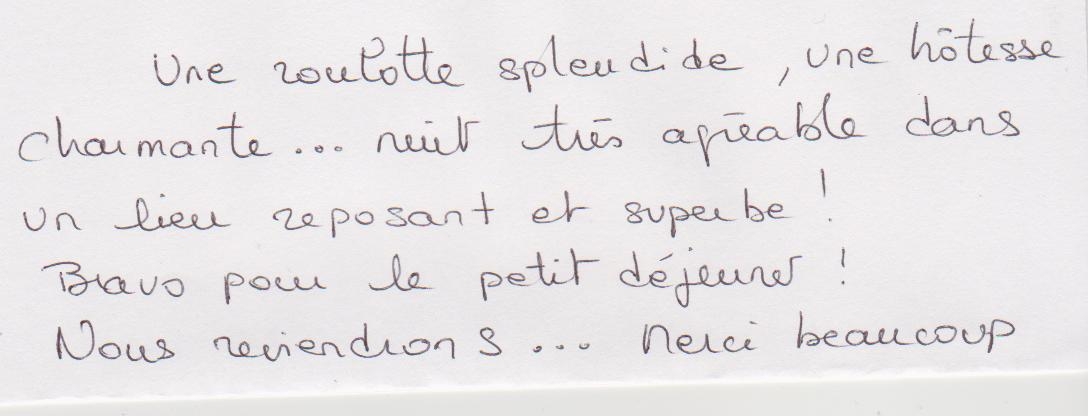 Une roulotte splendide, une hôtesse
charmante... nuit très agréable dans
un lieu reposant et superbe !
Bravo pour le petit déjeuner !
Nous reviendrons... Merci beaucoup